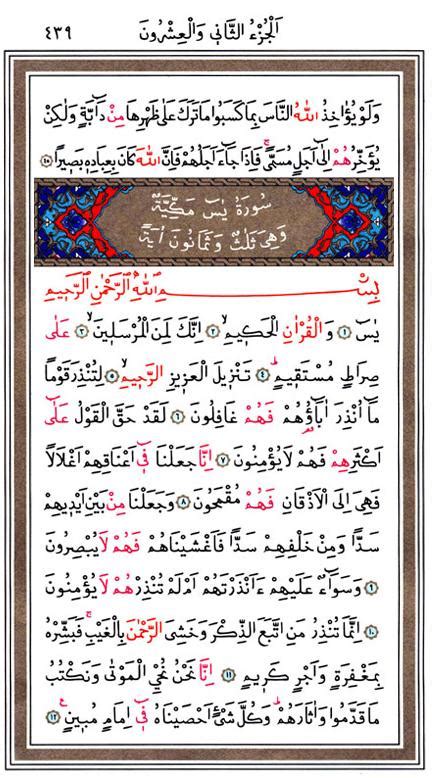 اَلْجُزْءُ الثَّانِي وَالْعِشْرُونَ ٤٣٩
وَلَوْ يُؤَاخِذُ اللهُ النَّاسَ بِمَا كَسَبُوا مَا تَرَكَ عَلٰى ظَهْرِهَا مِنْ دَٓابَّةٍ وَلٰكِنْ
يُؤَخِّرُهُمْ اِلٰٓى اَجَلٍ مُسَمًّىۚ فَاِذَا جَٓاءَ اَجَلُهُمْ فَاِنَّ اللهَ كَانَ بِعِبَادِهٖ بَصِيرًا ﴿٤٥﴾
سُورَةُ يٰسٓ مَكِّيَّةٌ
وَهِيَ ثَلٰثٌ وَثَمَانُونَ اٰيَةً
بِسْمِ اللهِ الرَّحْمٰنِ الرَّحِيمِ
يٰسٓ ﴿١﴾ وَالْقُرْاٰنِ الْحَكِيمِۙ ﴿٢﴾ اِنَّكَ لَمِنَ الْمُرْسَلِينَۙ ﴿٣﴾ عَلٰى
صِرَاطٍ مُسْتَقِيمٍۜ ﴿٤﴾ تَنْزِيلَ الْعَزِيزِ الرَّحِيمِۙ ﴿٥﴾ لِتُنْذِرَ قَوْمًا
مَٓا اُنْذِرَ اٰبَٓاؤُهُمْ فَهُمْ غَافِلُونَ ﴿٦﴾ لَقَدْ حَقَّ الْقَوْلُ عَلٰٓى
اَكْثَرِهِمْ فَهُمْ لَا يُؤْمِنُونَ ﴿٧﴾ اِنَّا جَعَلْنَا فِٓي اَعْنَاقِهِمْ اَغْلَالًا
فَهِيَ اِلَى الْاَذْقَانِ فَهُمْ مُقْمَحُونَ ﴿٨﴾ وَجَعَلْنَا مِنْ بَيْنِ اَيْدِيهِمْ
سَدًّا وَمِنْ خَلْفِهِمْ سَدًّا فَاَغْشَيْنَاهُمْ فَهُمْ لَا يُبْصِرُونَ
﴿٩﴾ وَسَوَٓاءٌ عَلَيْهِمْ ءَاَنْذَرْتَهُمْ اَمْ لَمْ تُنْذِرْهُمْ لَا يُؤْمِنُونَ
﴿١٠﴾ اِنَّمَا تُنْذِرُ مَنِ اتَّبَعَ الذِّكْرَ وَخَشِيَ الرَّحْمٰنَ بِالْغَيْبِۚ فَبَشِّرْهُ
بِمَغْفِرَةٍ وَاَجْرٍ كَرِيمٍ ﴿١١﴾ اِنَّا نَحْنُ نُحْيِ الْمَوْتٰى وَنَكْتُبُ
مَا قَدَّمُوا وَاٰثَارَهُمْۜ وَكُلَّ شَيْءٍ اَحْصَيْنَاهُ فِٓي اِمَامٍ مُبِينٍ۟ ﴿١٢﴾